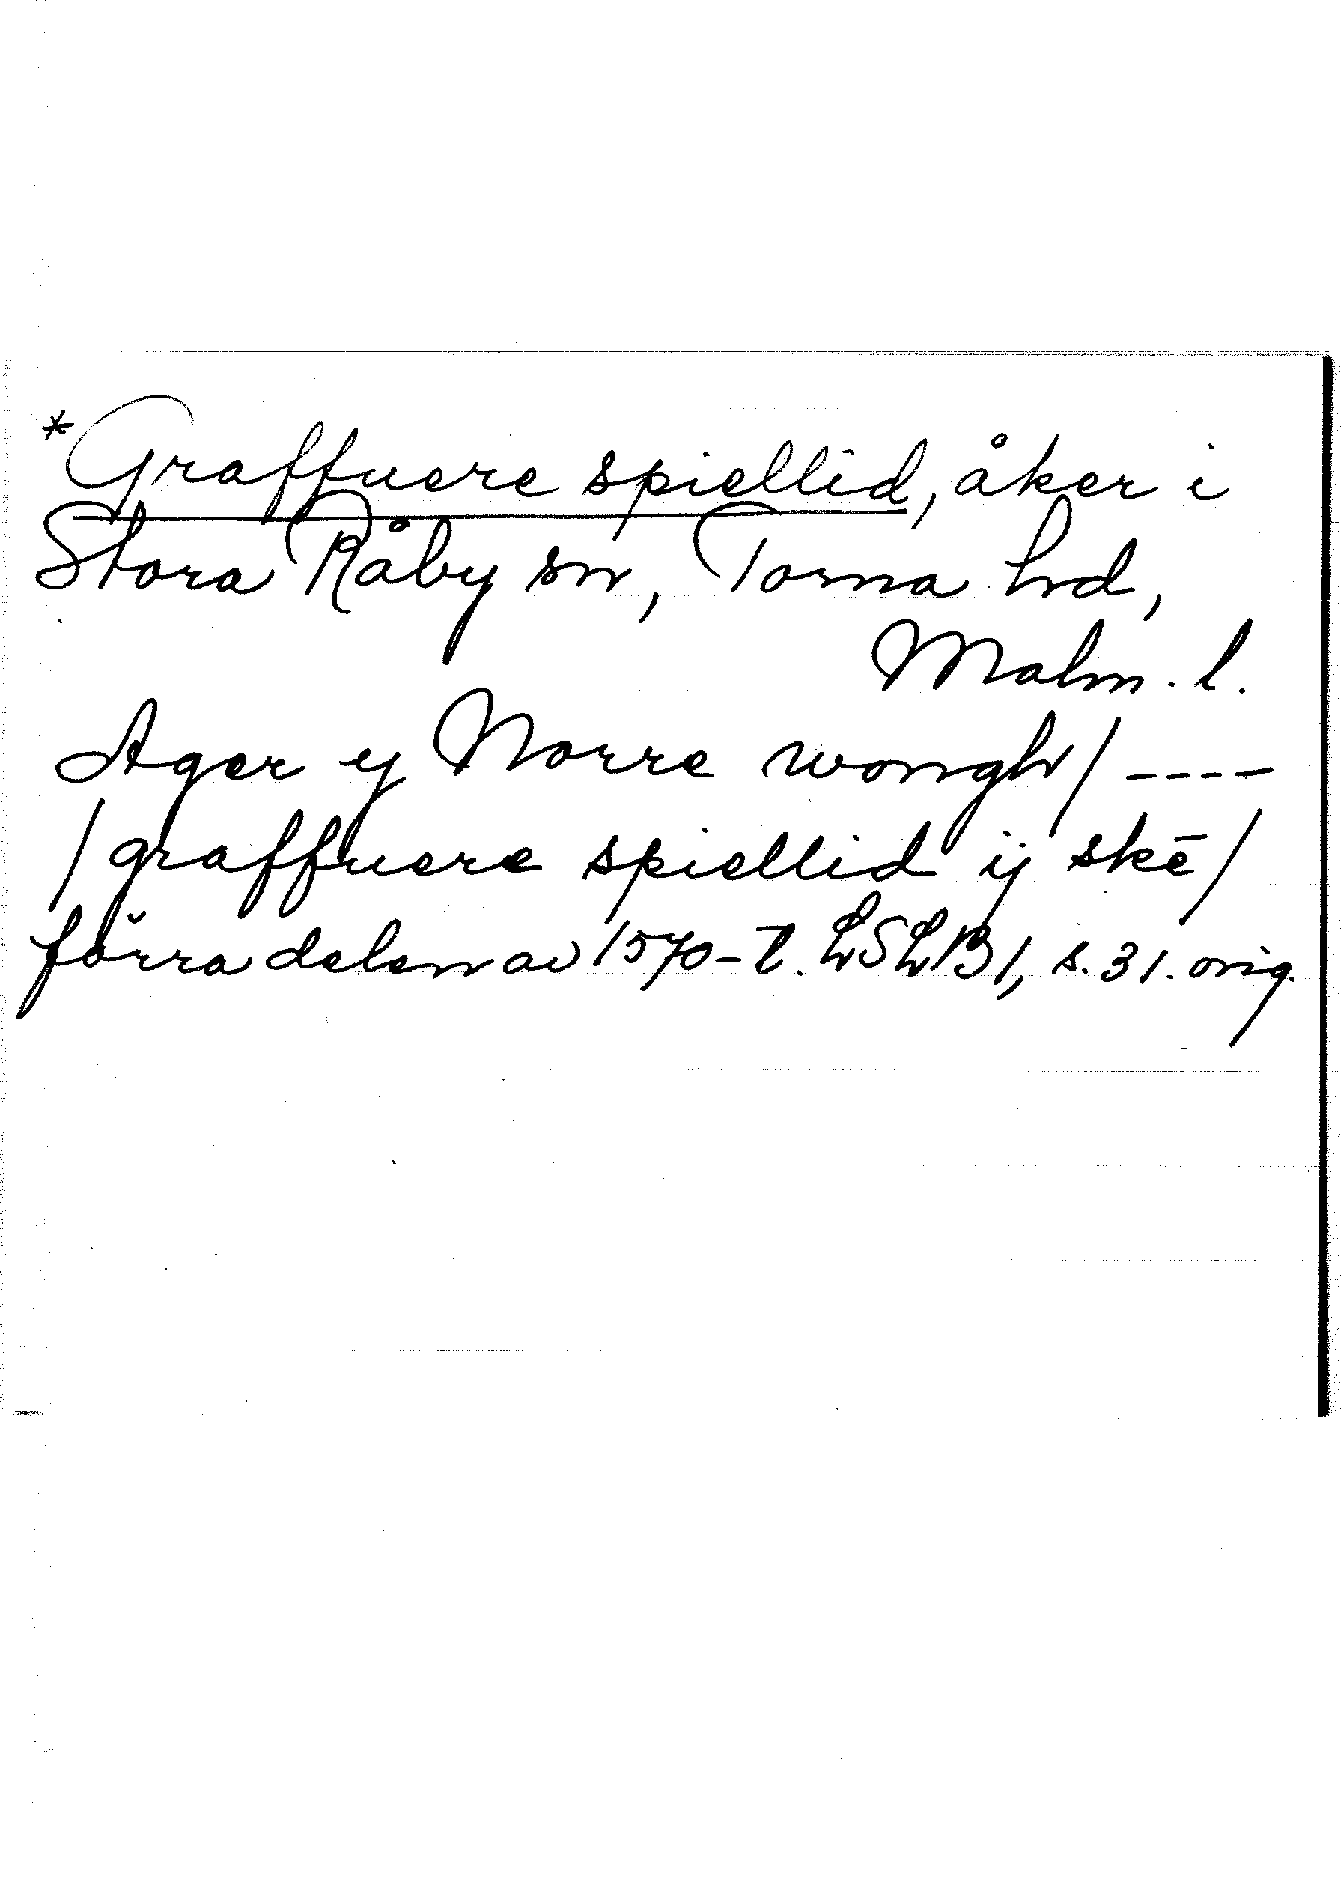 *Graffuere spiellid, åker i
Stora Råby sn, Torna hd,
Malm. l.
Ager y Norre wongh/ ----
/graffuere spiellid ij skē/
förra delen av 1570-t. LSLB1, s. 31. orig.